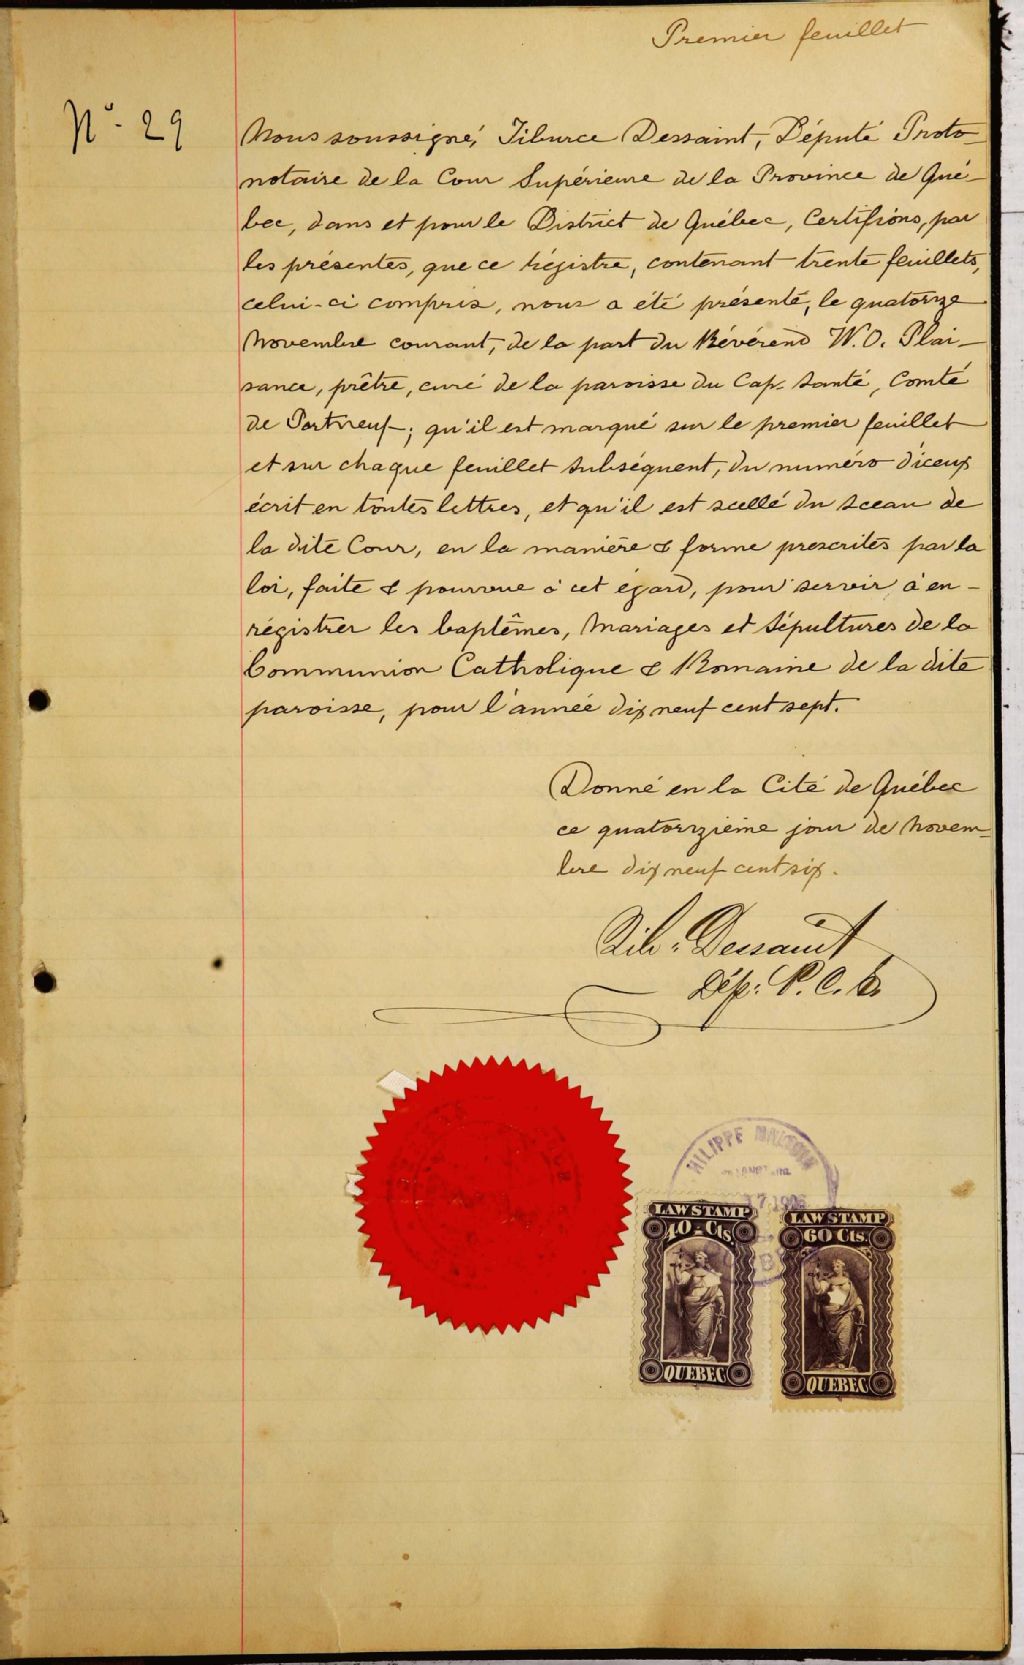 Premier feuillet
No - 29
Nous soussigné, Tiburce Dessaint, Député Proto-
notaire de la Cour Supérieure de la Province de Qué-
bec, dans et pour le District de Québec, Certifions, par
les présentes, que ce régistre, contenant trente feuillets,
celui-ci compris, nous a été présenté, le quatorze
Novembre courant, de la part du Révérend W.O. Plai-
sance, prêtre, curé de la paroisse du Cap-Santé, Comté
de Portneuf; qu'il est marqué sur le premier feuillet
et sur chaque feuillet subséquent, du numéro d'iceux
écrit en toutes lettres, et qu'il est scellé du sceau de
la dite Cour, en la manière & forme prescrites par la
loi, faite & pourvue à cet égard, pour servir à en-
régistrer les baptêmes, Mariages et Sépultures de la
Communion Catholique & Romaine de la dite
paroisse, pour l'année dix neuf cent sept.
Donné en la Cité de Québec
ce quatorzième jour de Novem-
bre dix neuf cent six.
Tib. Dessaint
Dép. P.C.S.
PHILIPPE
17 1906
LAW STAMP
40 - Cts.
QUEBEC
LAW STAMP
60 Cts.
QUEBEC